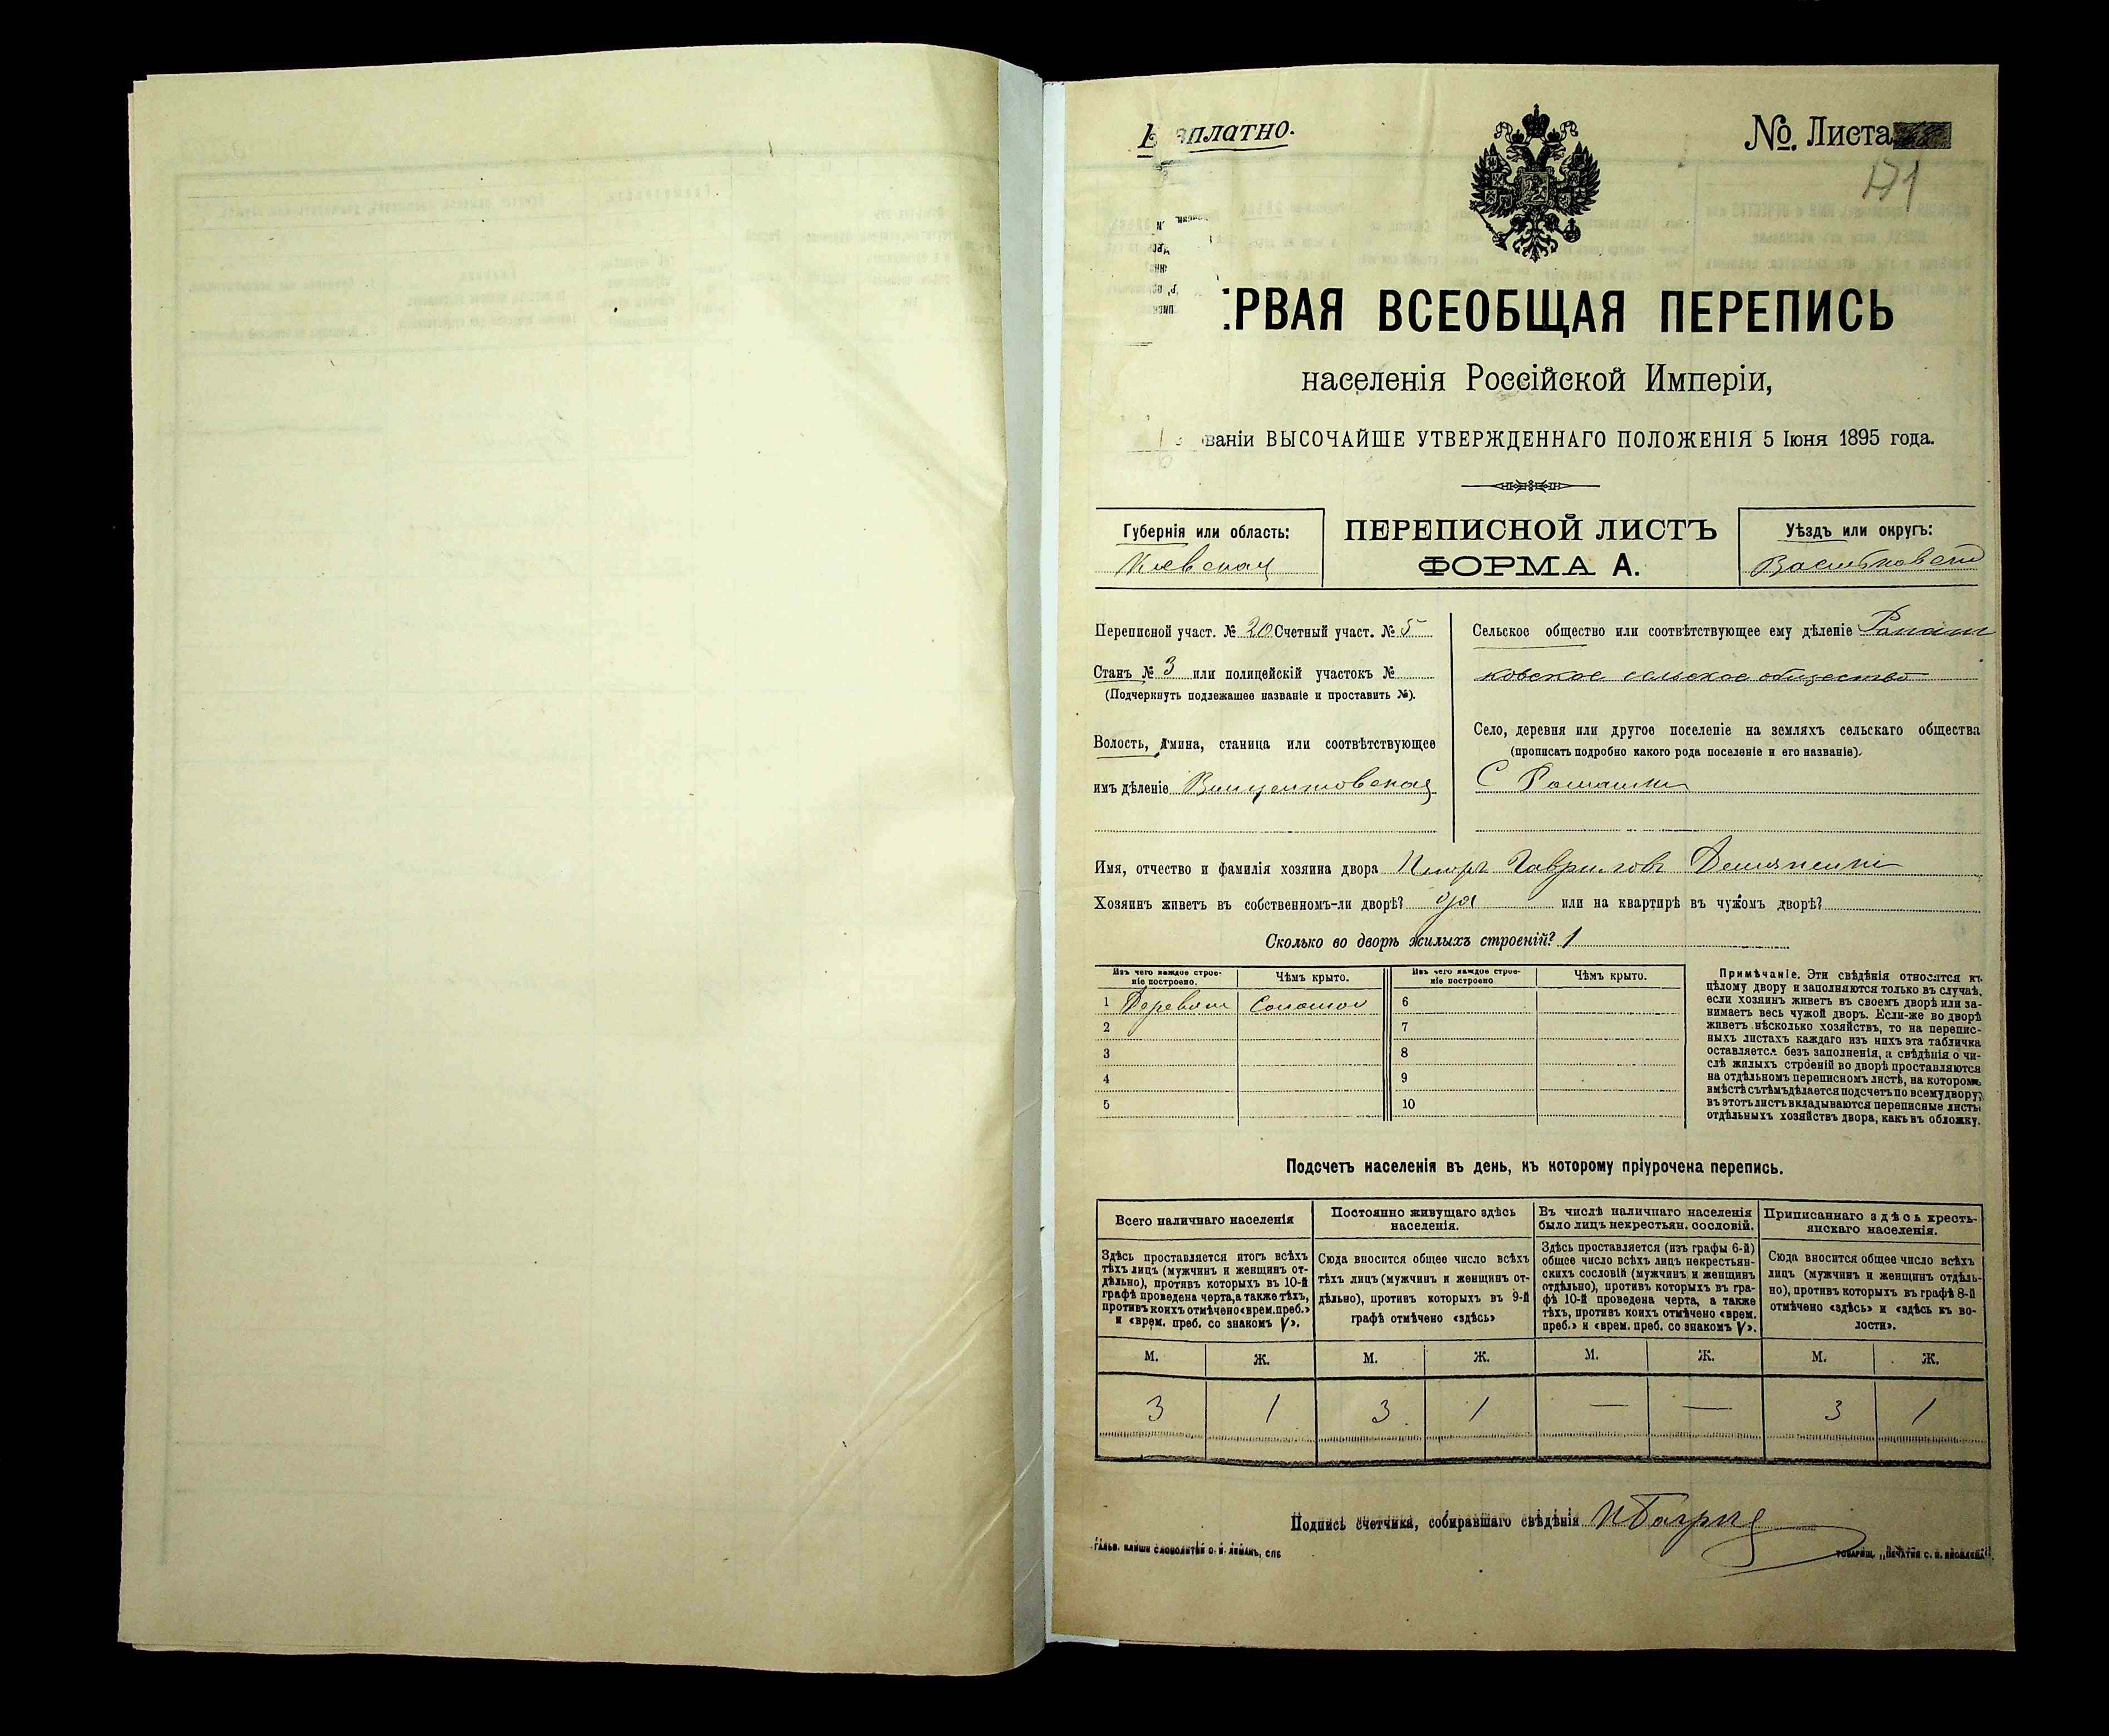 платно.
№. Листа
171
РВАЯ ВСЕОБЩАЯ ПЕРЕПИСЬ
населенія Россійской Имперіи,
ваніи ВЫСОЧАЙШЕ УТВЕРЖДЕННАГО ПОЛОЖЕНІЯ 5 Іюня 1895 года.
Губернія или область:
Кіевская
ПЕРЕПИСНОЙ ЛИСТЪ
ФОРМА А.
Уѣздъ или округъ:
Переписной участ. № 20 Счетный участ. № 5
Станъ № 3 или полицейскій участокъ №
(Подчеркнуть подлежащее названіе и проставить №).
Волость, гмина, станица или соотвѣтствующее
имъ дѣленіе Винцентовская
Сельское общество или соотвѣтствующее ему дѣленіе
ковское сельское общество
Село, деревня или другое поселеніе на земляхъ сельскаго общества
(прописать подробно какого рода поселеніе и его названіе).
С Ромашки
Имя, отчество и фамилія хозяина двора Гаврилов
Хозяинъ живетъ въ собственномъ-ли дворѣ? да или на квартирѣ въ чужомъ дворѣ?
Сколько во дворѣ жилыхъ строеній? 1
Изъ чего каждое строе-
ніе построено.
Чѣмъ крыто.
Изъ чего каждое строе-
ніе построено
Чѣмъ крыто.
1 6
2 7
3 8
4 9
5 10
Примѣчаніе. Эти свѣдѣнія относятся къ
цѣлому двору и заполняются только въ случаѣ,
если хозяинъ живетъ въ своемъ дворѣ или за-
нимаетъ весь чужой дворъ. Если-же во дворѣ
живетъ нѣсколько хозяйствъ, то на перепис-
ныхъ листахъ каждаго изъ нихъ эта табличка
оставляется безъ заполненія, а свѣдѣнія о чи-
слѣ жилыхъ строеній во дворѣ проставляются
на отдѣльномъ переписномъ листѣ, на которомъ
вмѣстѣ съ тѣмъ дѣлается подсчетъ по всему двору;
въ этотъ листъ вкладываются переписные листы
отдѣльныхъ хозяйствъ двора, какъ въ обложку.
Подсчетъ населенія въ день, къ которому пріурочена перепись.
Всего наличнаго населенія
Здѣсь проставляется итогъ всѣхъ
тѣхъ лицъ (мужчинъ и женщинъ от-
дѣльно), противъ которыхъ въ 10-й
графѣ проведена черта, а также тѣхъ,
противъ коихъ отмѣчено «врем. преб.»
и «врем. преб. со знакомъ V».
Постоянно живущаго здѣсь
населенія.
Сюда вносится общее число всѣхъ
тѣхъ лицъ (мужчинъ и женщинъ от-
дѣльно), противъ которыхъ въ 9-й
графѣ отмѣчено «здѣсь»
Въ числѣ наличнаго населенія
было лицъ некрестьян. сословій.
Здѣсь проставляется (изъ графы 6-й)
общее число всѣхъ лицъ некрестьян-
скихъ сословій (мужчинъ и женщинъ
отдѣльно), противъ которыхъ въ гра-
фѣ 10-й проведена черта, а также
тѣхъ, противъ коихъ отмѣчено «врем.
преб.» и «врем. преб. со знакомъ V».
Приписаннаго здѣсь кресть-
янскаго населенія.
Сюда вносится общее число всѣхъ
лицъ (мужчинъ и женщинъ отдѣль-
но), противъ которыхъ въ графѣ 8-й
отмѣчено «здѣсь» и «здѣсь къ во-
лости».
М. Ж. М. Ж. М. Ж. М. Ж.
3 1 3 1 — — 3 1
Подпись счетчика, собиравшаго свѣдѣнія